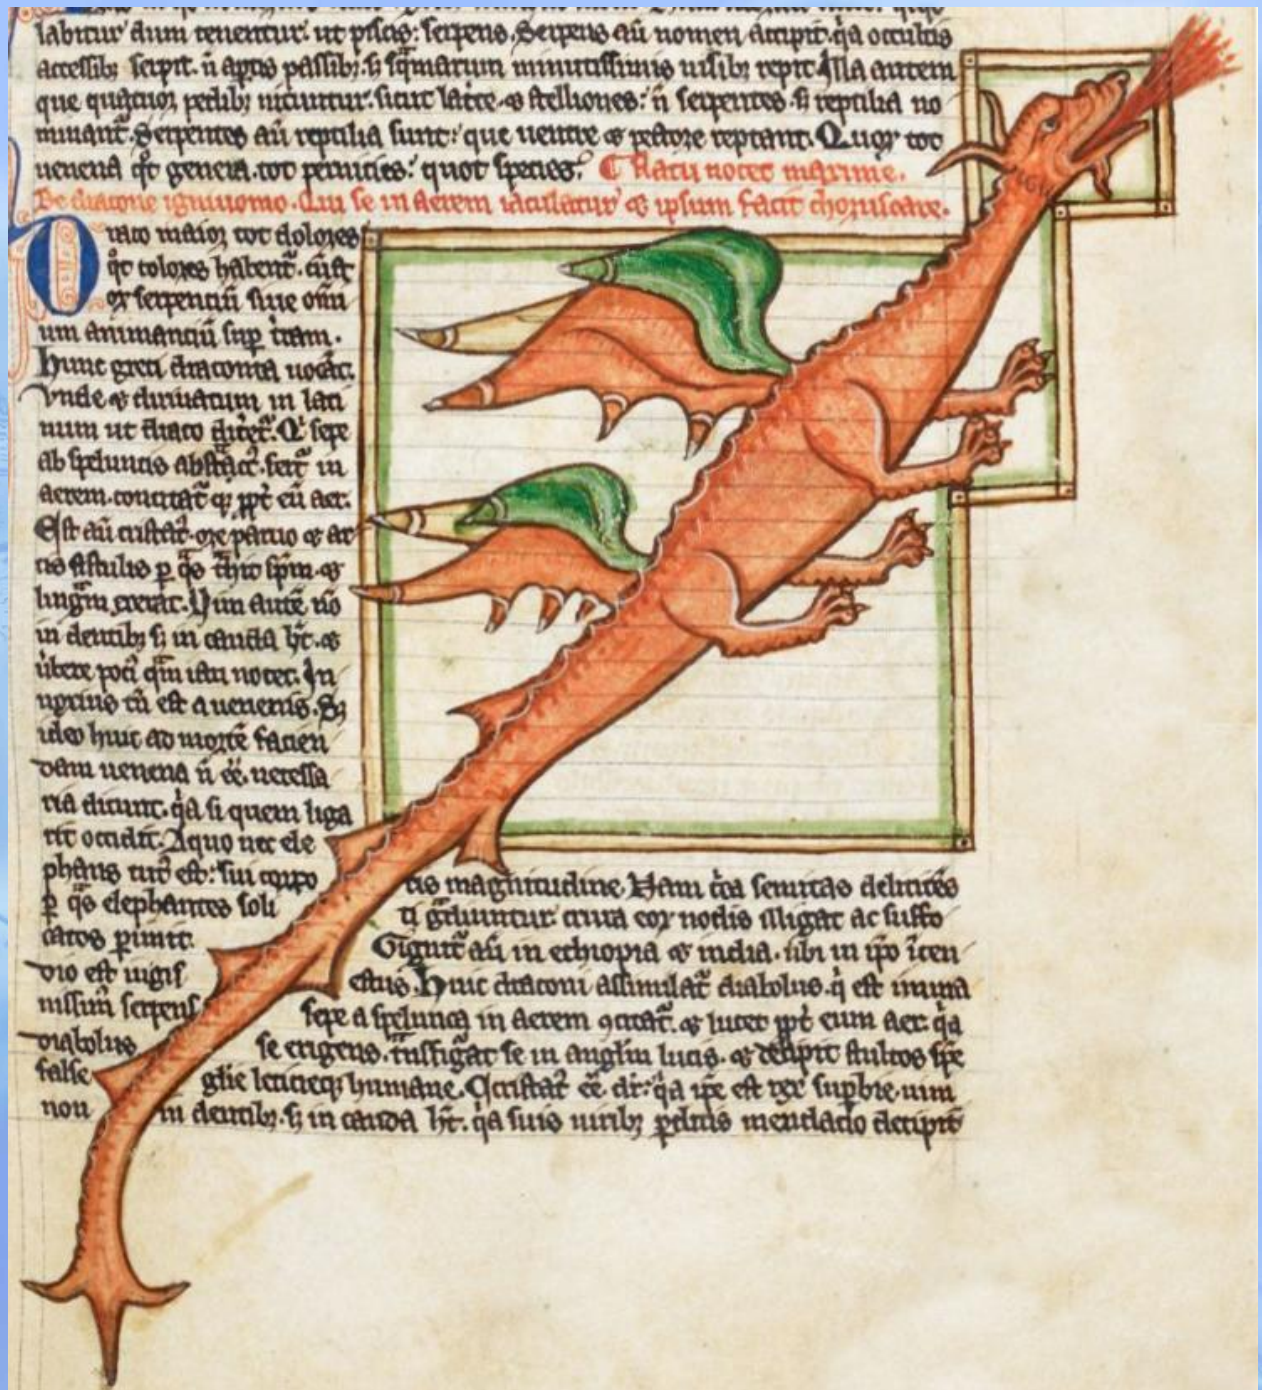 labitur dum tenentur. ut piscis: serpens. Serpens aũ nomen accipit. q̃a occultis
accessibꝫ serpit. ñ aptis passibꝫ. sꝫ sq̃marum minutissimis nisibꝫ repit. Illa autem
que quatuor pedibꝫ nituntur. sicut lacte. ⁊ stelliones: ñ serpentes. sꝫ reptilia no
minant̃. Serpentes aũ reptilia sunt: que uentre ⁊ pectore reptant. Quoꝝ tot
uenena q̊t genera. tot pernicies: quot species. Flatu nocet maxime.
De dracone igniuomo. Qui se in aerem iaculatur ⁊ ipsum facit choruscare.
Draco maior tot dolores
q̊t colores habent̃.
or serpentiũ siue om̃i
um animanciũ sup̱ t̃ram.
Hunc greci draconta uocãt.
Vnde ⁊ diriuatum in lati
num ut draco dicet̃. Q̇ sepe
ab speluncis abst̃act̃. fert̃ in
aerem. concitat̃ qꝫ ꝓpt̃ eũ aer.
Est aũ cristat̃. ore paruo ⁊ ar
tis fistulis ꝑ q̃s t̃hit sp̃m. ⁊
lingũm exerat. Uim autẽ nõ
in dentibꝫ sꝫ in cauda h̃t. ⁊
in
noxius tñ est a uenenis. Sꝫ
ideo huic ad mortẽ facien
dam uenena ñ eẽ. necessa
ria dicunt. q̃a si quem liga
rit occidit. A quo nec ele
phans tut̃ est: sui corpo
ris magnitudine. Nam
ꝑ q̃s elephantes soli
ti g̃diuntur. crura eoꝝ nodis illigat ac suffo
catos ꝑimit.
Gignit̃ aũ in ethiopia ⁊ india. ubi in ip̃o ĩcen
dio est iugis
estus. Huic draconi assimilat̃ diabolus. q̇ est imma
nissim̃ serpens
sepe a spelunca in aerem ꝯcitat̃. ⁊ lucet ꝓpt̃ eum aer. q̃a
diabolus
se erigens. t̃nsfigũat se in anglm̃ lucis. ⁊ decipit stultos spe
false
gl̃ie leticieqꝫ humane. Cristat̃ eẽ dr̃: q̃a ip̃e est rex supbie. uim
non
in dentibꝫ. sꝫ in cauda h̃t. q̃a suis uiribꝫ ꝑditis mendacio decipit